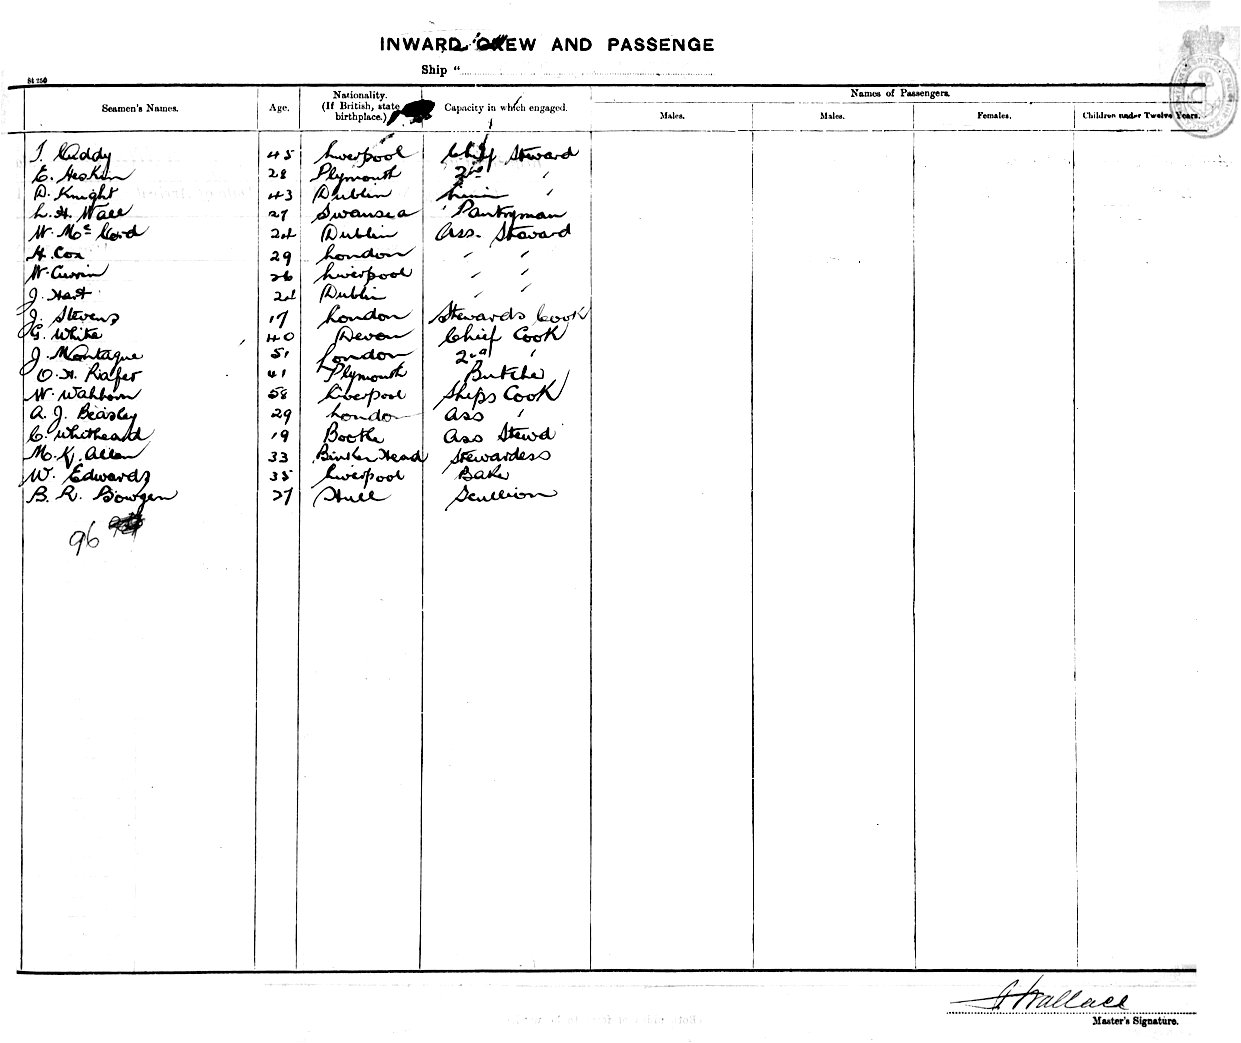 INWARD CREW AND PASSENGE
Ship "
St 250
Seamen's Names. Age. Nationality. (If British, state birthplace.) Capacity in which engaged. Names of Passengers.
Males. Males. Females. Children under Twelve Years.
T. Caddy 45 Liverpool Chief Steward
E. Heskin 28 Plymouth 2nd "
D. Knight 43 Dublin "
L. H. Wall 27 Swansea Pantryman
W. Mc Cord 24 Dublin Ass. Steward
H. Cox 29 London " "
W. Currin 26 Liverpool " "
J. Hart 24 Dublin " "
J. Stevens 17 London Stewards Cook
G. White 40 Devon Chief Cook
J. Montague 51 London 2nd "
O. H. 41 Plymouth Butcher
W. 58 Liverpool Ships Cook
A. J. Beasley 29 London Ass "
C. Whitheard 19 Bootle Ass Stewd
M. K. Allan 33 Birken Head Stewardess
W. Edwards 35 Liverpool Baker
B. R. Bowgen 27 Hull Scullion
96
J Wallace
Master's Signature.